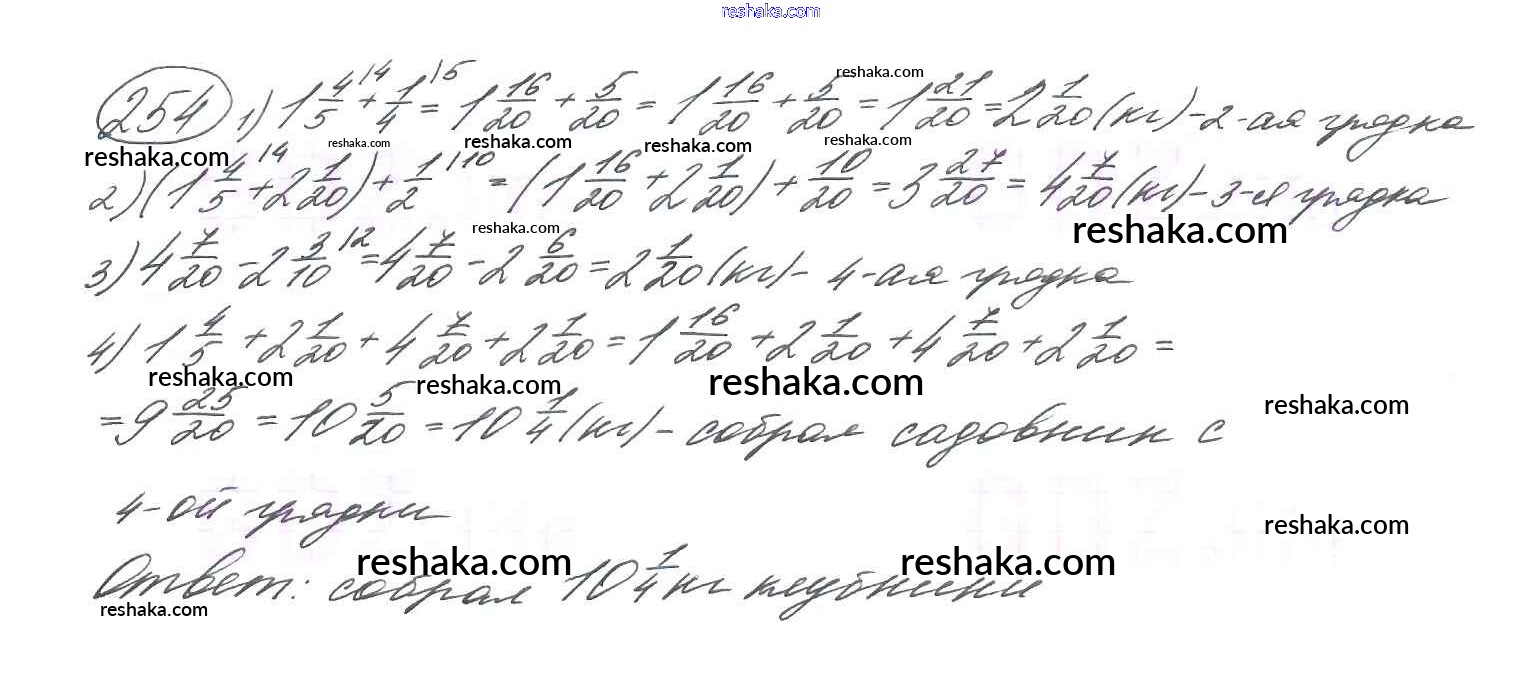 reshaka.com
254 1) 1 4/5 |4 + 1/4 |5 = 1 16/20 + 5/20 = 1 16/20 + 5/20 = 1 21/20 = 2 1/20 (кг) - 2-ая грядка
reshaka.com
reshaka.com reshaka.com reshaka.com reshaka.com reshaka.com
2) (1 4/5 |4 + 2 1/20) + 1/2 |10 = (1 16/20 + 2 1/20) + 10/20 = 3 27/20 = 4 7/20 (кг) - 3-я грядка
reshaka.com reshaka.com
3) 4 7/20 - 2 3/10 |2 = 4 7/20 - 2 6/20 = 2 1/20 (кг) - 4-ая грядка
4) 1 4/5 + 2 1/20 + 4 7/20 + 2 1/20 = 1 16/20 + 2 1/20 + 4 7/20 + 2 1/20 =
reshaka.com reshaka.com reshaka.com reshaka.com
= 9 25/20 = 10 5/20 = 10 1/4 (кг) - собрал садовник с
4-ой грядки
reshaka.com
reshaka.com reshaka.com
Ответ: собрал 10 1/4 кг клубники
reshaka.com